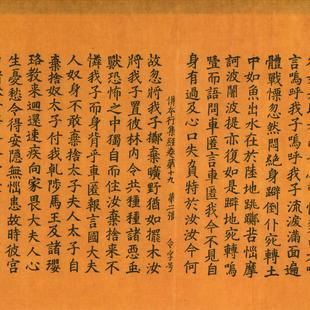 言嗚呼我子嗚呼我子流淚滿面遍
體戰慄忽然悶絕身躃倒仆宛轉土
中如魚出水在於陸地跳躑苦惱摩
訶波闍波提亦復如是躃地宛轉嗚
噎而語問車匿言車匿我今不見自
身有過及心口失負特於汝汝今何
佛本行集經卷第十九 第二張 令字号
故忽將我子擲棄曠野猶如擺木汝
將我子置彼林內令共種種諸惡虫
獸恐怖之中獨自而住汝棄捨來不
憐我子而身背乎車匿報言國大夫
人奴身不敢棄捨太子夫人太子自
棄捨奴太子付我乹陟馬王及諸瓔
珞教來迴還速疾向家畏大夫人心
生憂愁令得安隱無惱患故時彼宮